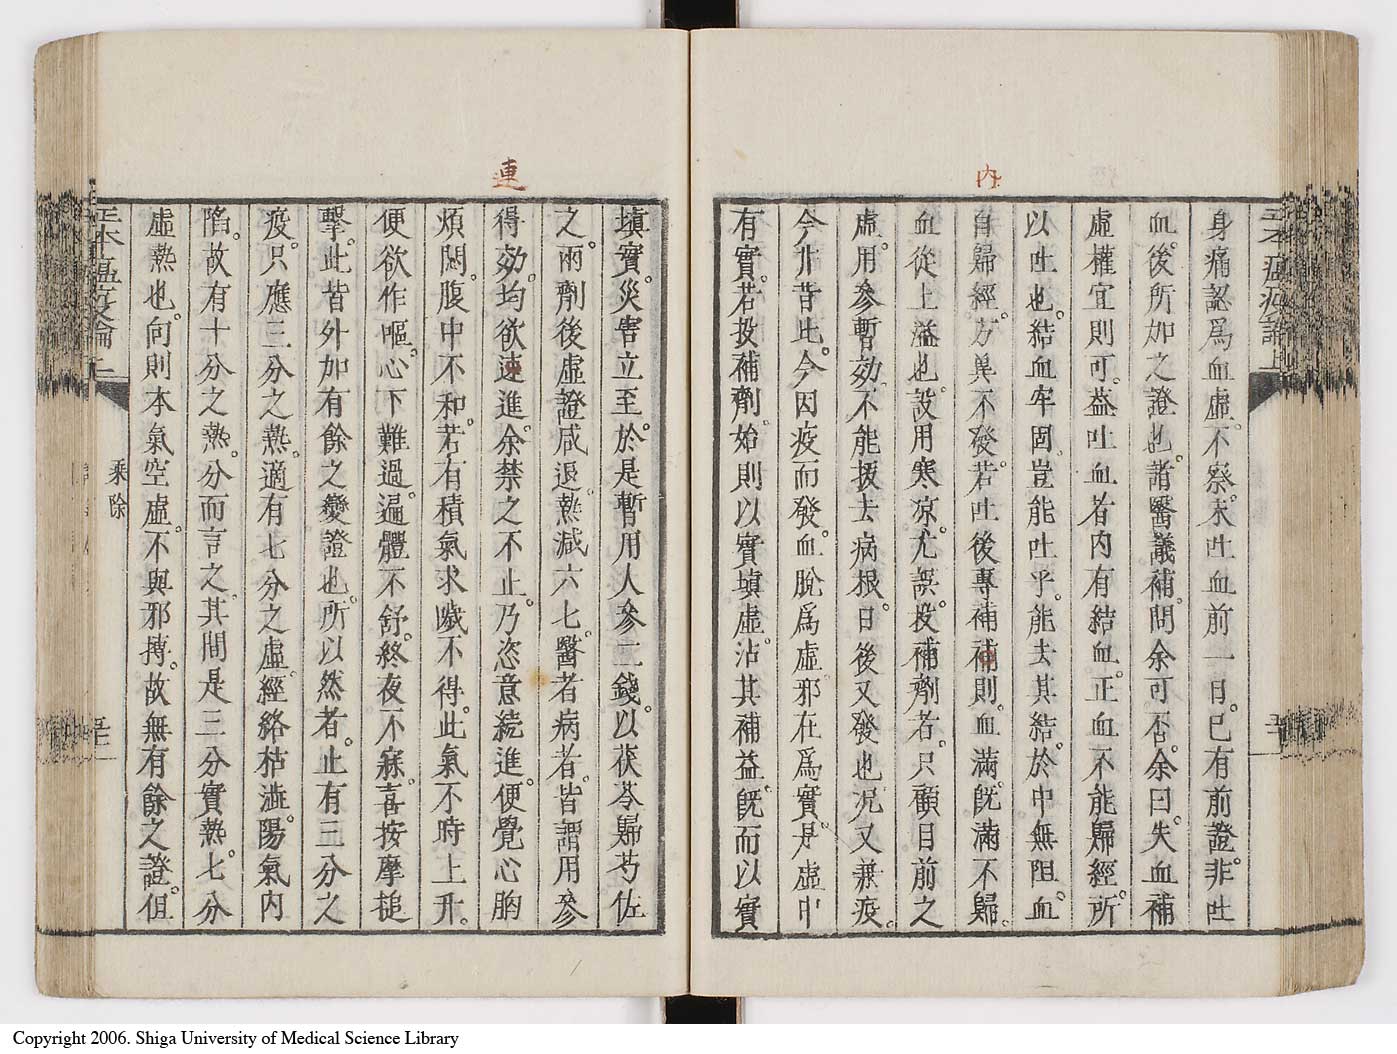 內
身痛認爲血虛。不察。未吐血前一日。已有前證。非吐
血後所加之證也。諸醫議補。問余可否。余曰。失血補
虛。權宜則可。蓋吐血者內有結血。正血不能歸經。所
以吐也。結血牢固。豈能吐乎。能去其結。於中無阻。血
自歸經。方冀不發。若吐後專補補則。血滿。旣滿不歸。
血從上溢也。設用寒凉。尤誤。投補劑者。只顧目前之
虛。用參暫効。不能拔去病根。日後又發也。況又兼疫。
今非昔比。今因疫而發。血脫爲虛。邪在爲實。是虛中
有實。若投補劑。始則以實塡虛。沾其補益。旣而以實
連
塡實。災害立至。於是暫用人參二錢。以茯苓歸芍佐
之。兩劑後虛證咸退。熱减六七。醫者病者。皆謂用參
得効。均欲速進。余禁之不止。乃恣意續進。便覺心胸
煩悶。腹中不和。若有積氣求噦不得。此氣不時上升。
便欲作嘔。心下難過。遍體不舒。終夜不寐。喜按摩槌
擊。此皆外加有餘之變證也。所以然者。止有三分之
疫。只應三分之熱。適有七分之虛。經絡枯澁。陽氣內
陷。故有十分之熱。分而言之。其間是三分實熱。七分
虛熱也。向則本氣空虛。不與邪搏。故無有餘之證。但
乘除
Copyright 2006. Shiga University of Medical Science Library